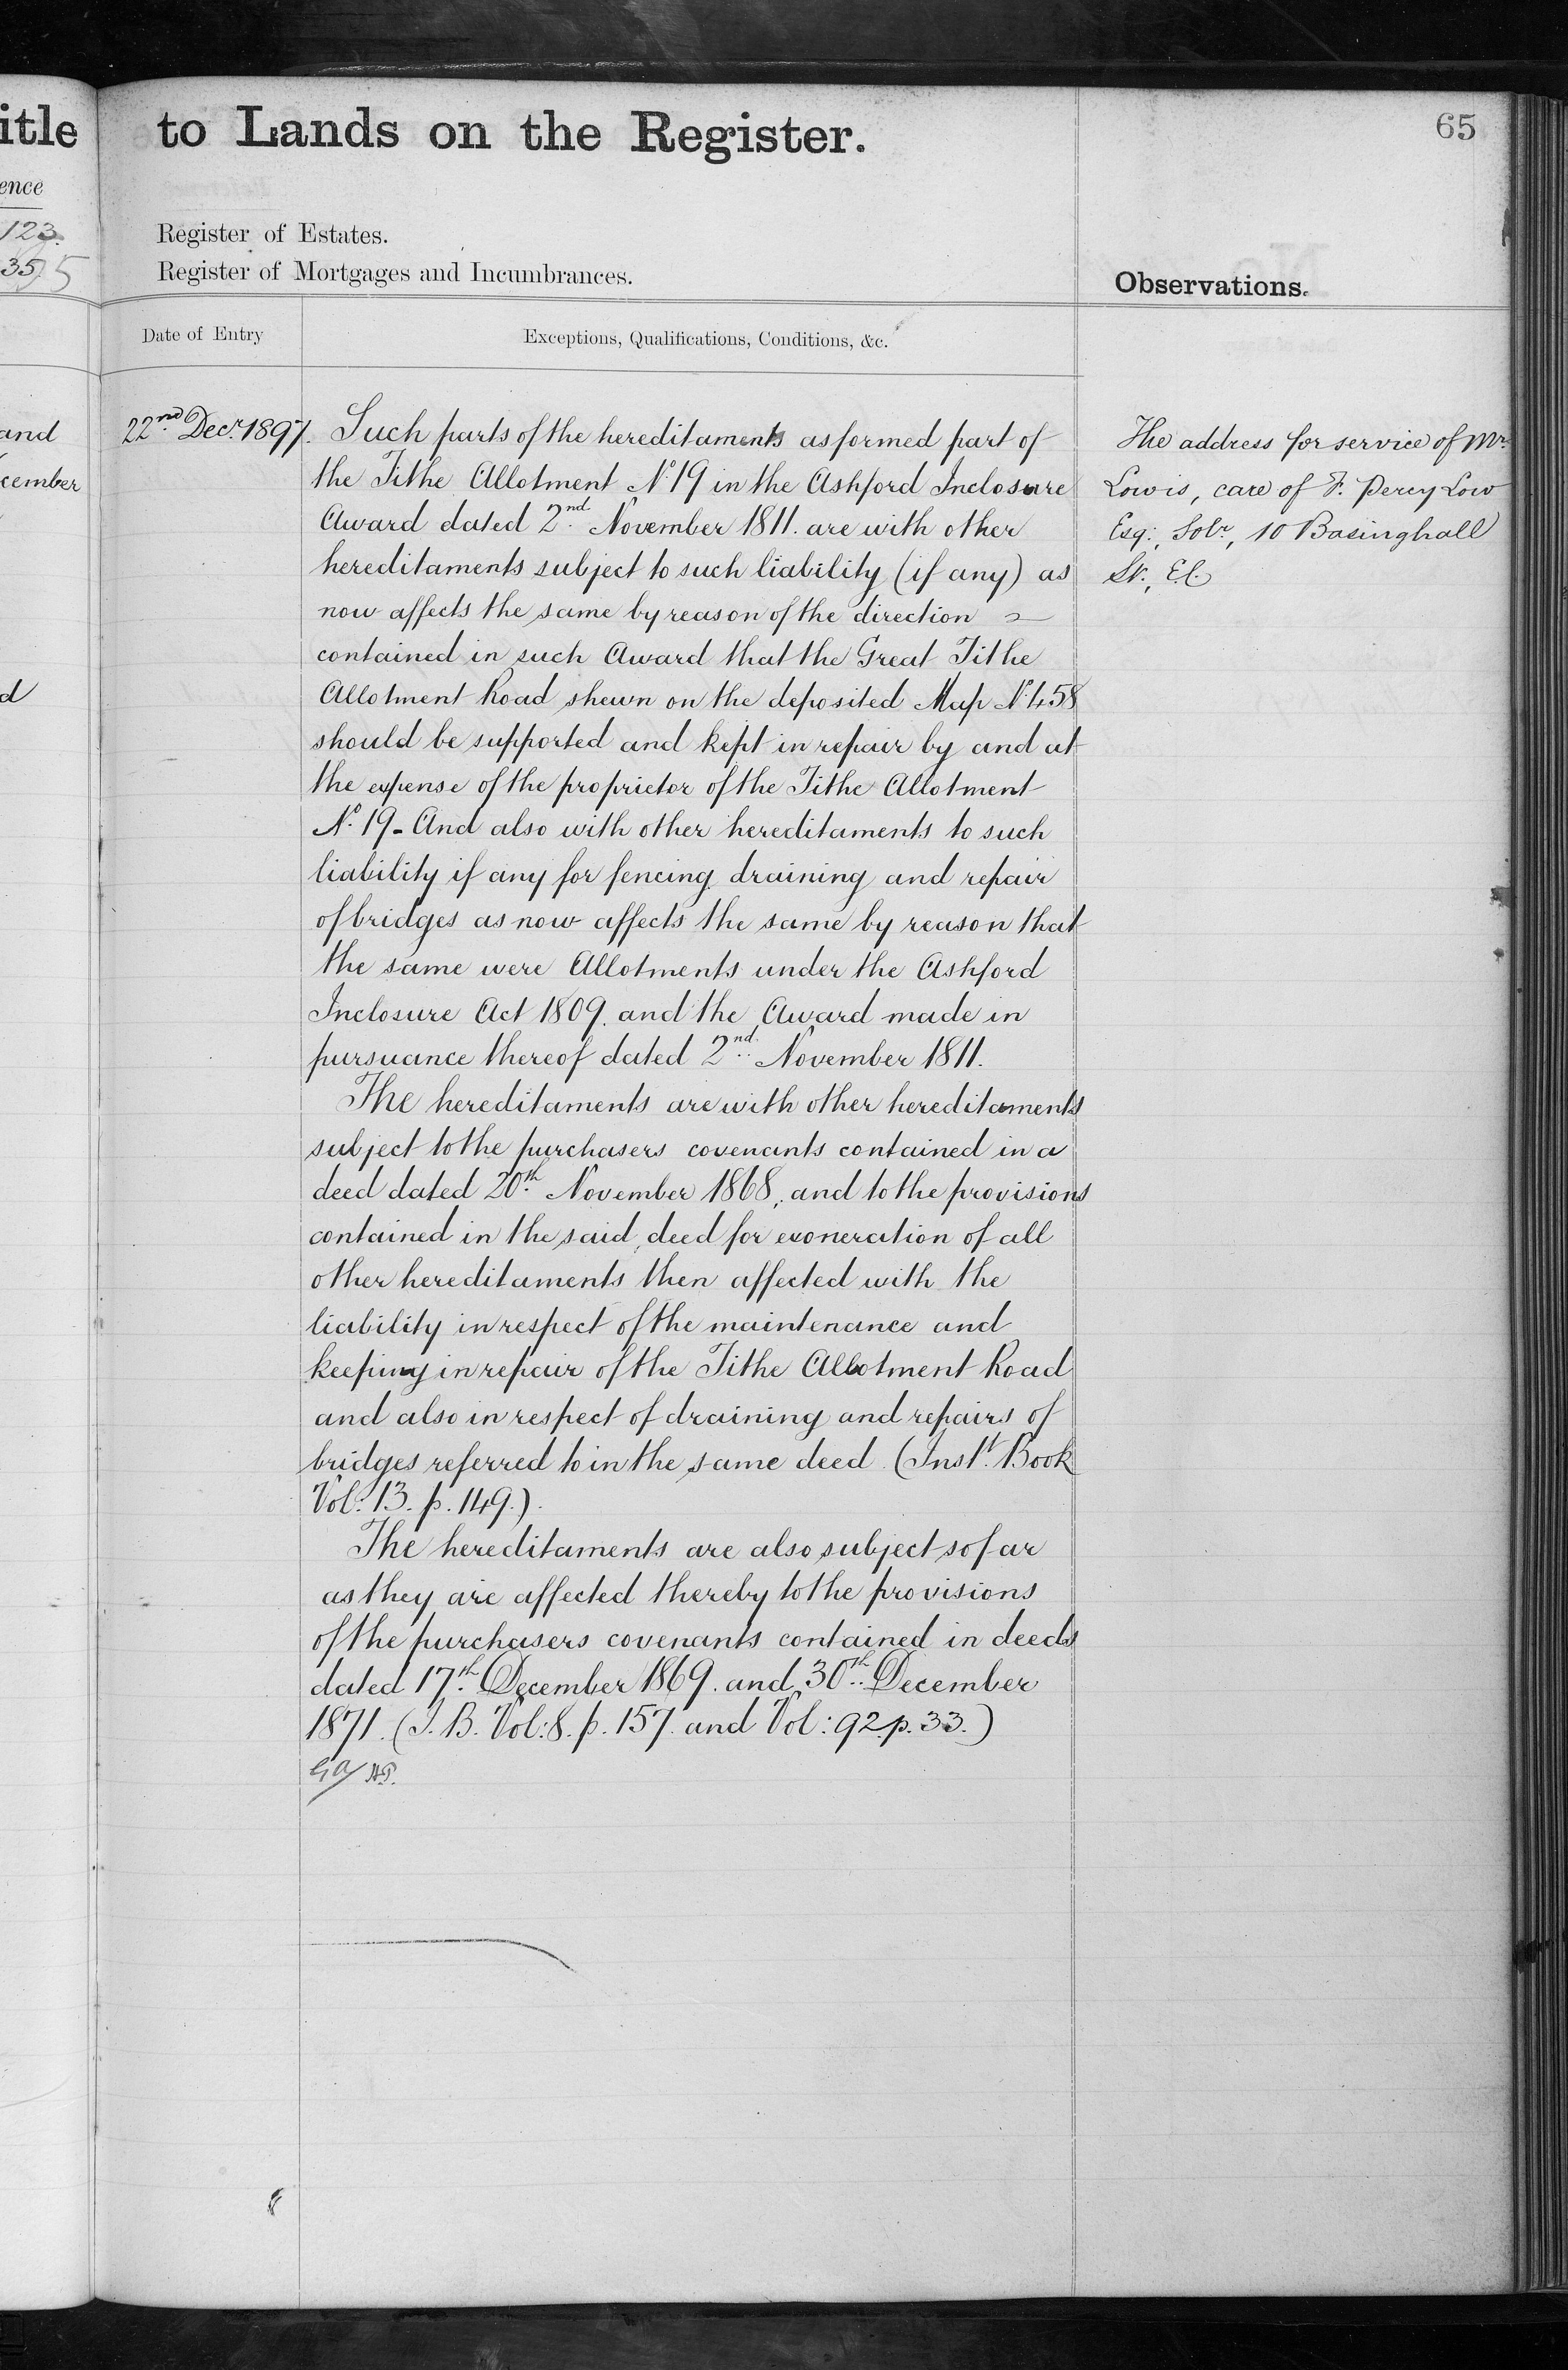 itle
ence
123.
35
5
and
cember
d
to Lands on the Register.
65
Register of Estates.
Register of Mortgages and Incumbrances.
Observations.
Date of Entry
Exceptions, Qualifications, Conditions, &c.
22nd Decr. 1897.
Such parts of the hereditaments as formed part of
the Tithe Allotment No. 19 in the Ashford Inclosure
Award dated 2nd November 1811. are with other
hereditaments subject to such liability (if any) as
now affects the same by reason of the direction
contained in such Award that the Great Tithe
Allotment Road shewn on the deposited Map No. 458
should be supported and kept in repair by and at
the expense of the proprietor of the Tithe Allotment
No. 19 - And also with other hereditaments to such
liability if any for fencing draining and repair
of bridges as now affects the same by reason that
the same were Allotments under the Ashford
Inclosure Act 1809. and the Award made in
pursuance thereof dated 2nd November 1811.
The hereditaments are with other hereditaments
subject to the purchasers covenants contained in a
deed dated 20th November 1868, and to the provisions
contained in the said deed for exoneration of all
other hereditaments then affected with the
liability in respect of the maintenance and
keeping in repair of the Tithe Allotment Road
and also in respect of draining and repairs of
bridges referred to in the same deed. (Inst. Book
Vol: 13. p. 149.).
The hereditaments are also subject so far
as they are affected thereby to the provisions
of the purchasers covenants contained in deeds
dated 17th December 1869. and 30th December
1871. (I. B. Vol: 8. p. 157. and Vol: 92. p. 33.)
The address for service of Mr.
Lowis, care of F. Percy Low
Esq:, Solr, 10 Basinghall
St., E.C.